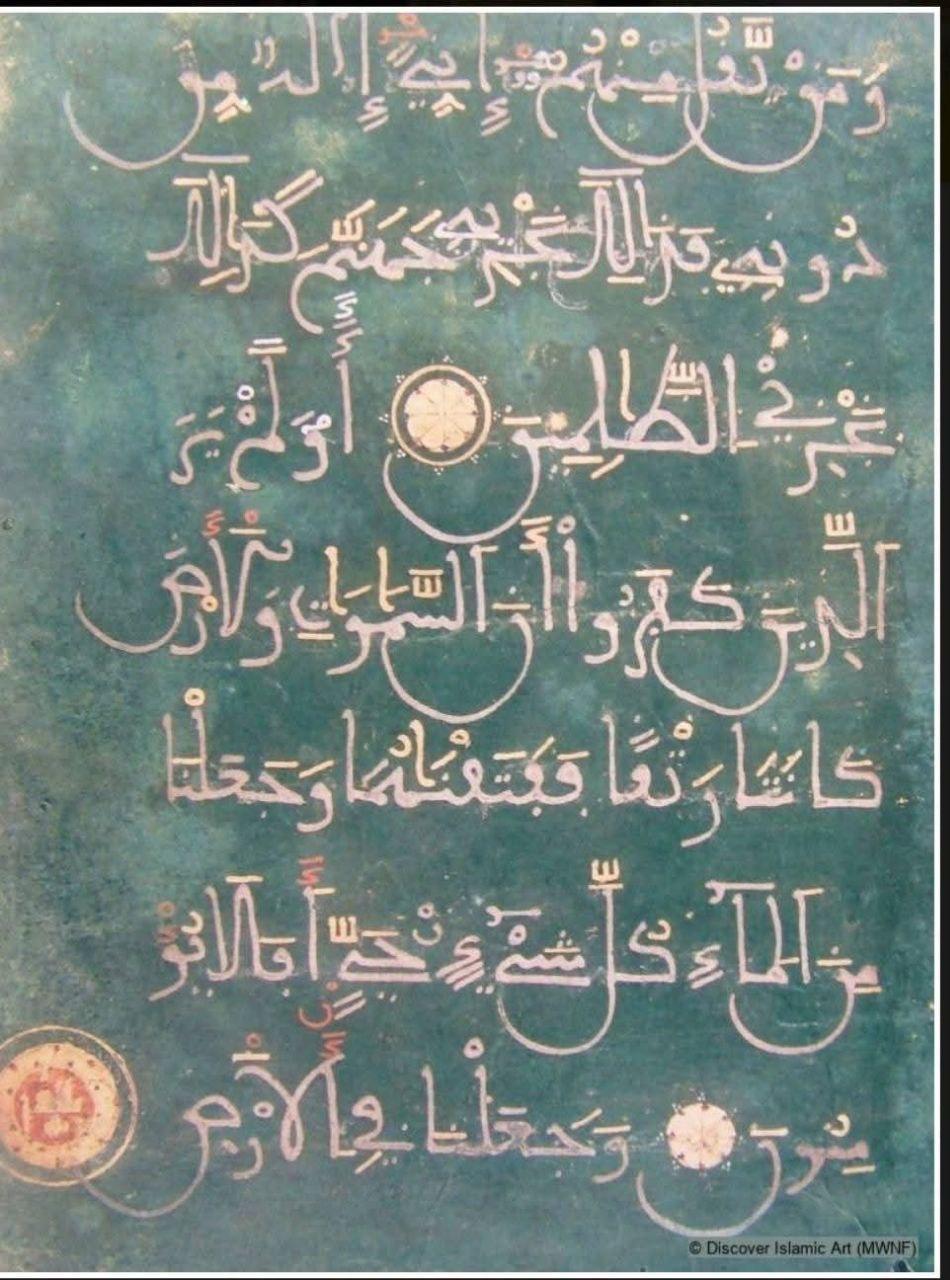 وَمَن يَّقُلْ مِنْهُمُ إِنِّيَ إِلَٰهٌ مِّن
دُونِهِ فَذَٰلِكَ نَجْزِيهِ جَهَنَّمَ كَذَٰلِكَ
نَجْزِي الظَّٰلِمِينَ أَوَلَمْ يَرَ
الَّذِينَ كَفَرُوا أَنَّ السَّمَٰوَٰتِ وَالْأَرْضَ
كَانَتَا رَتْقًا فَفَتَقْنَٰهُمَا وَجَعَلْنَا
مِنَ الْمَاءِ كُلَّ شَيْءٍ حَيٍّ أَفَلَا يُؤْ
مِنُونَ وَجَعَلْنَا فِي الْأَرْضِ
© Discover Islamic Art (MWNF)